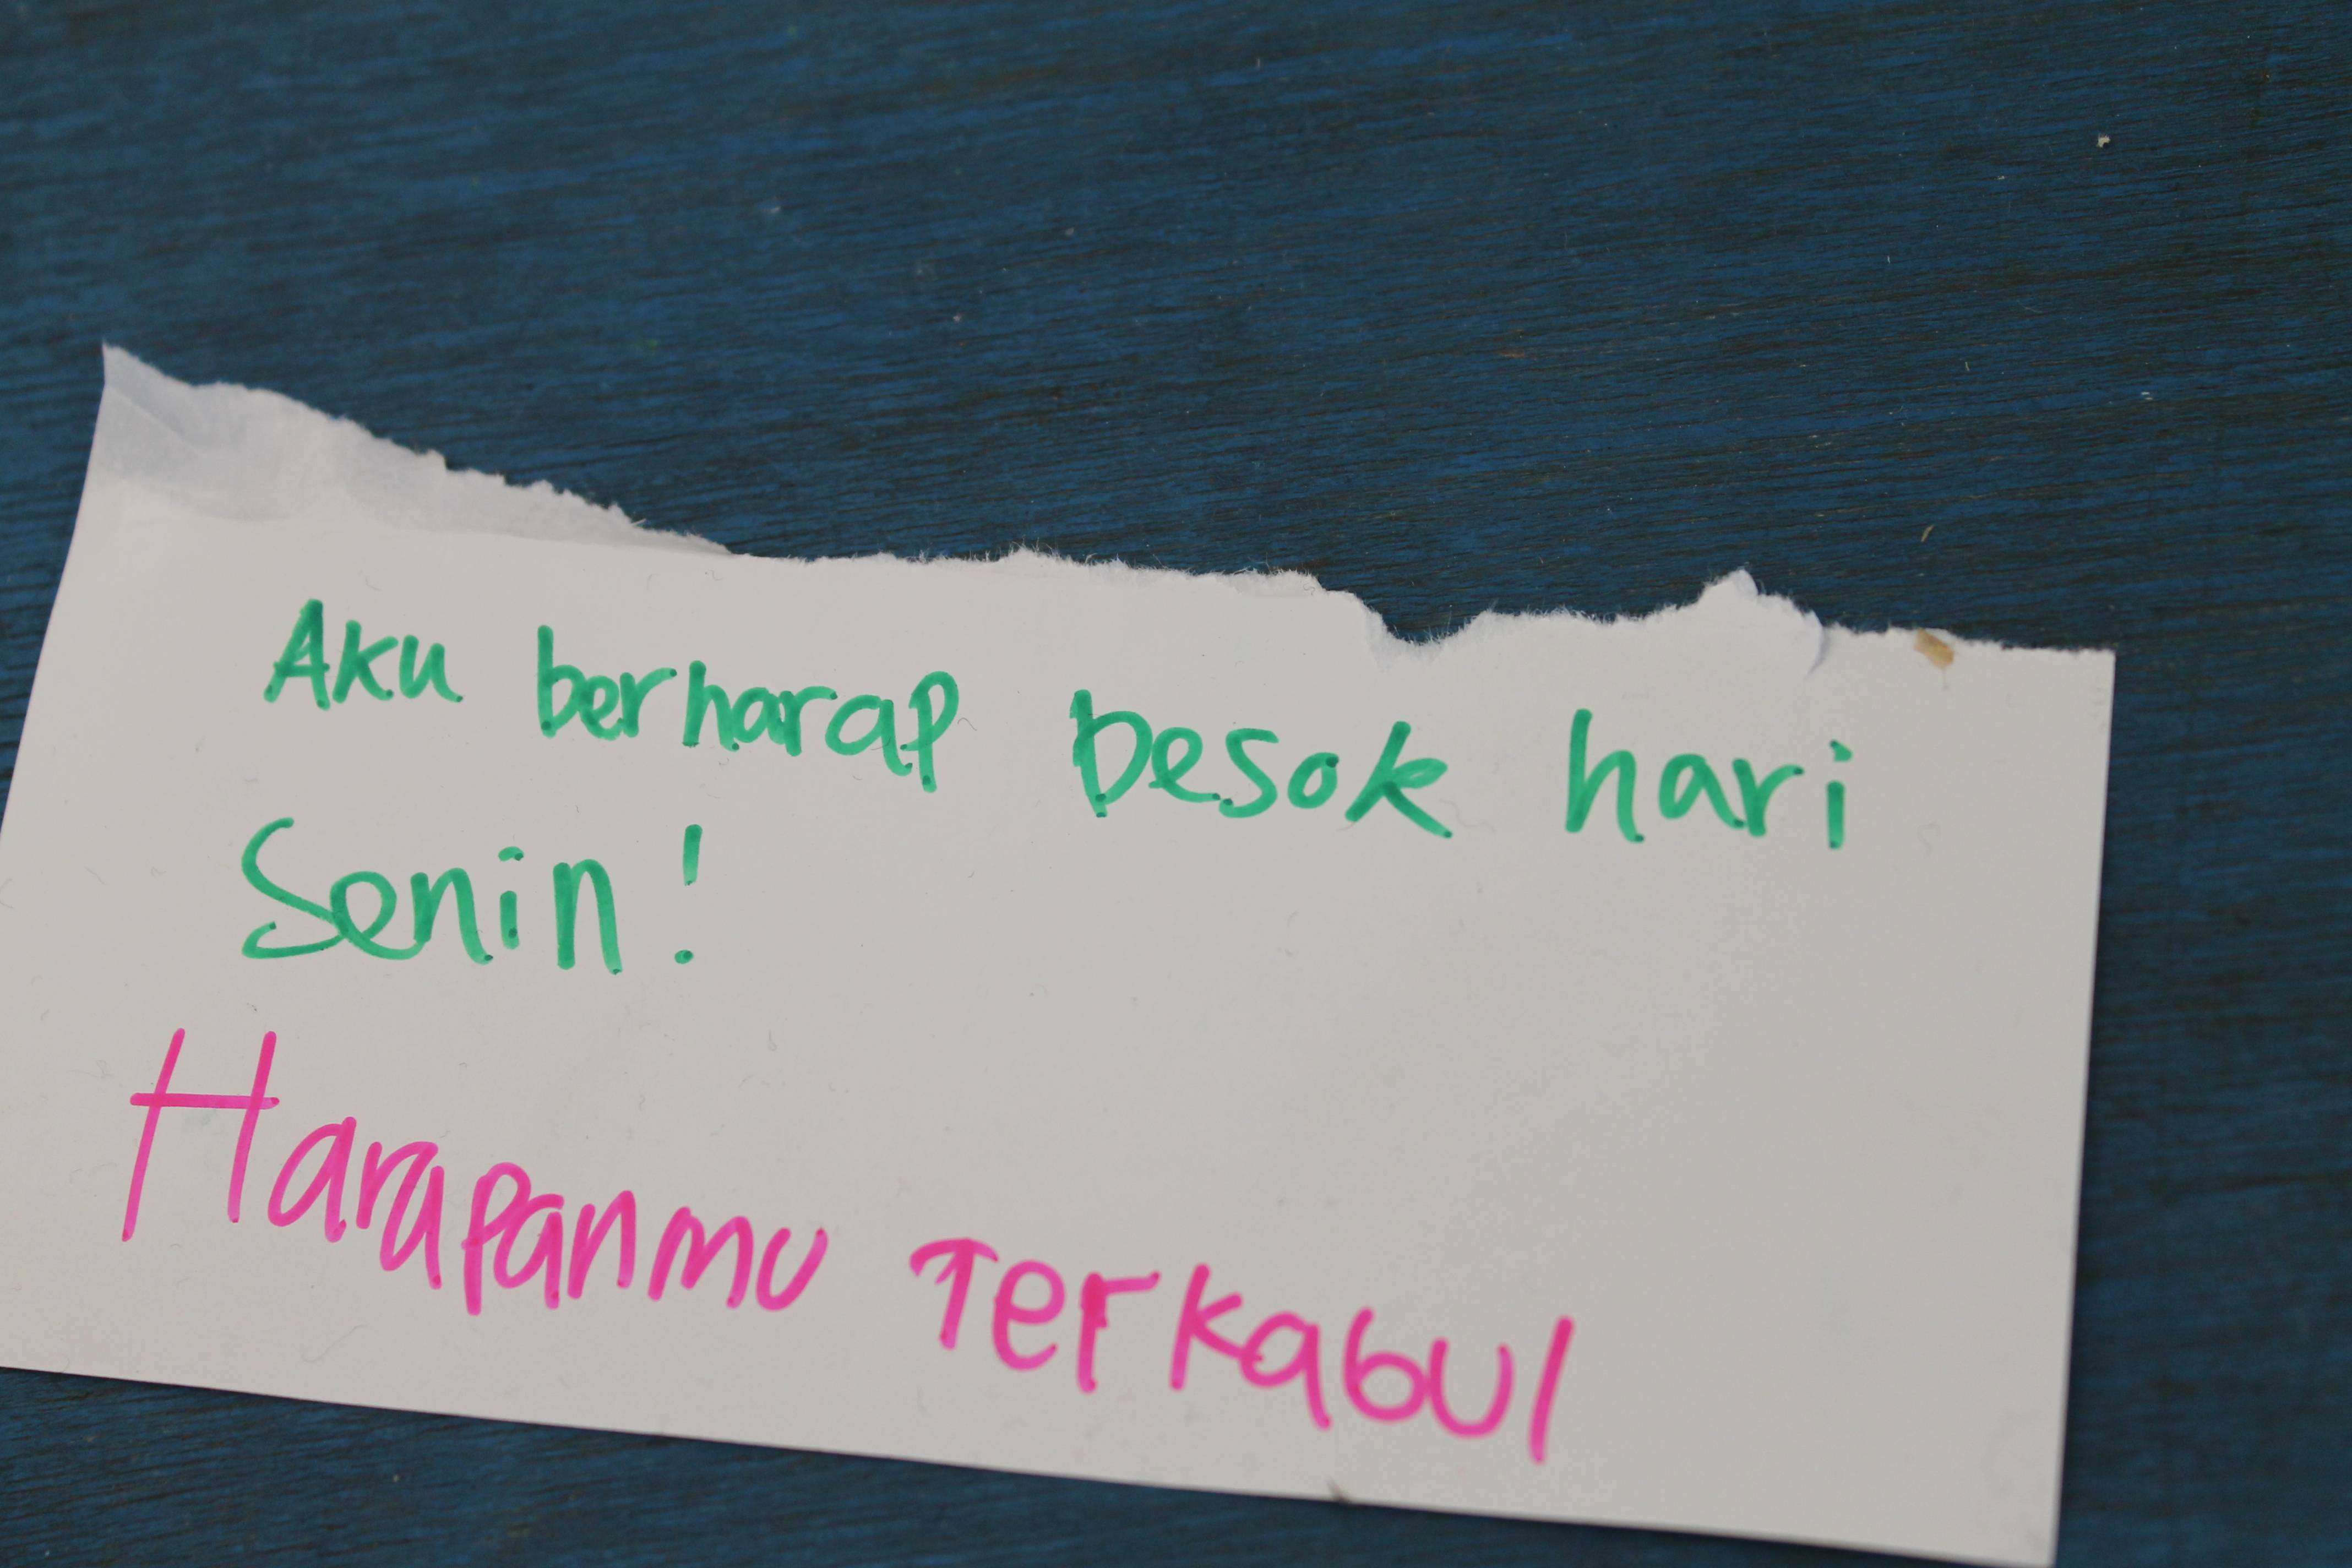 Aku berharap besok hari
Senin!
Harapanmu Terkabul